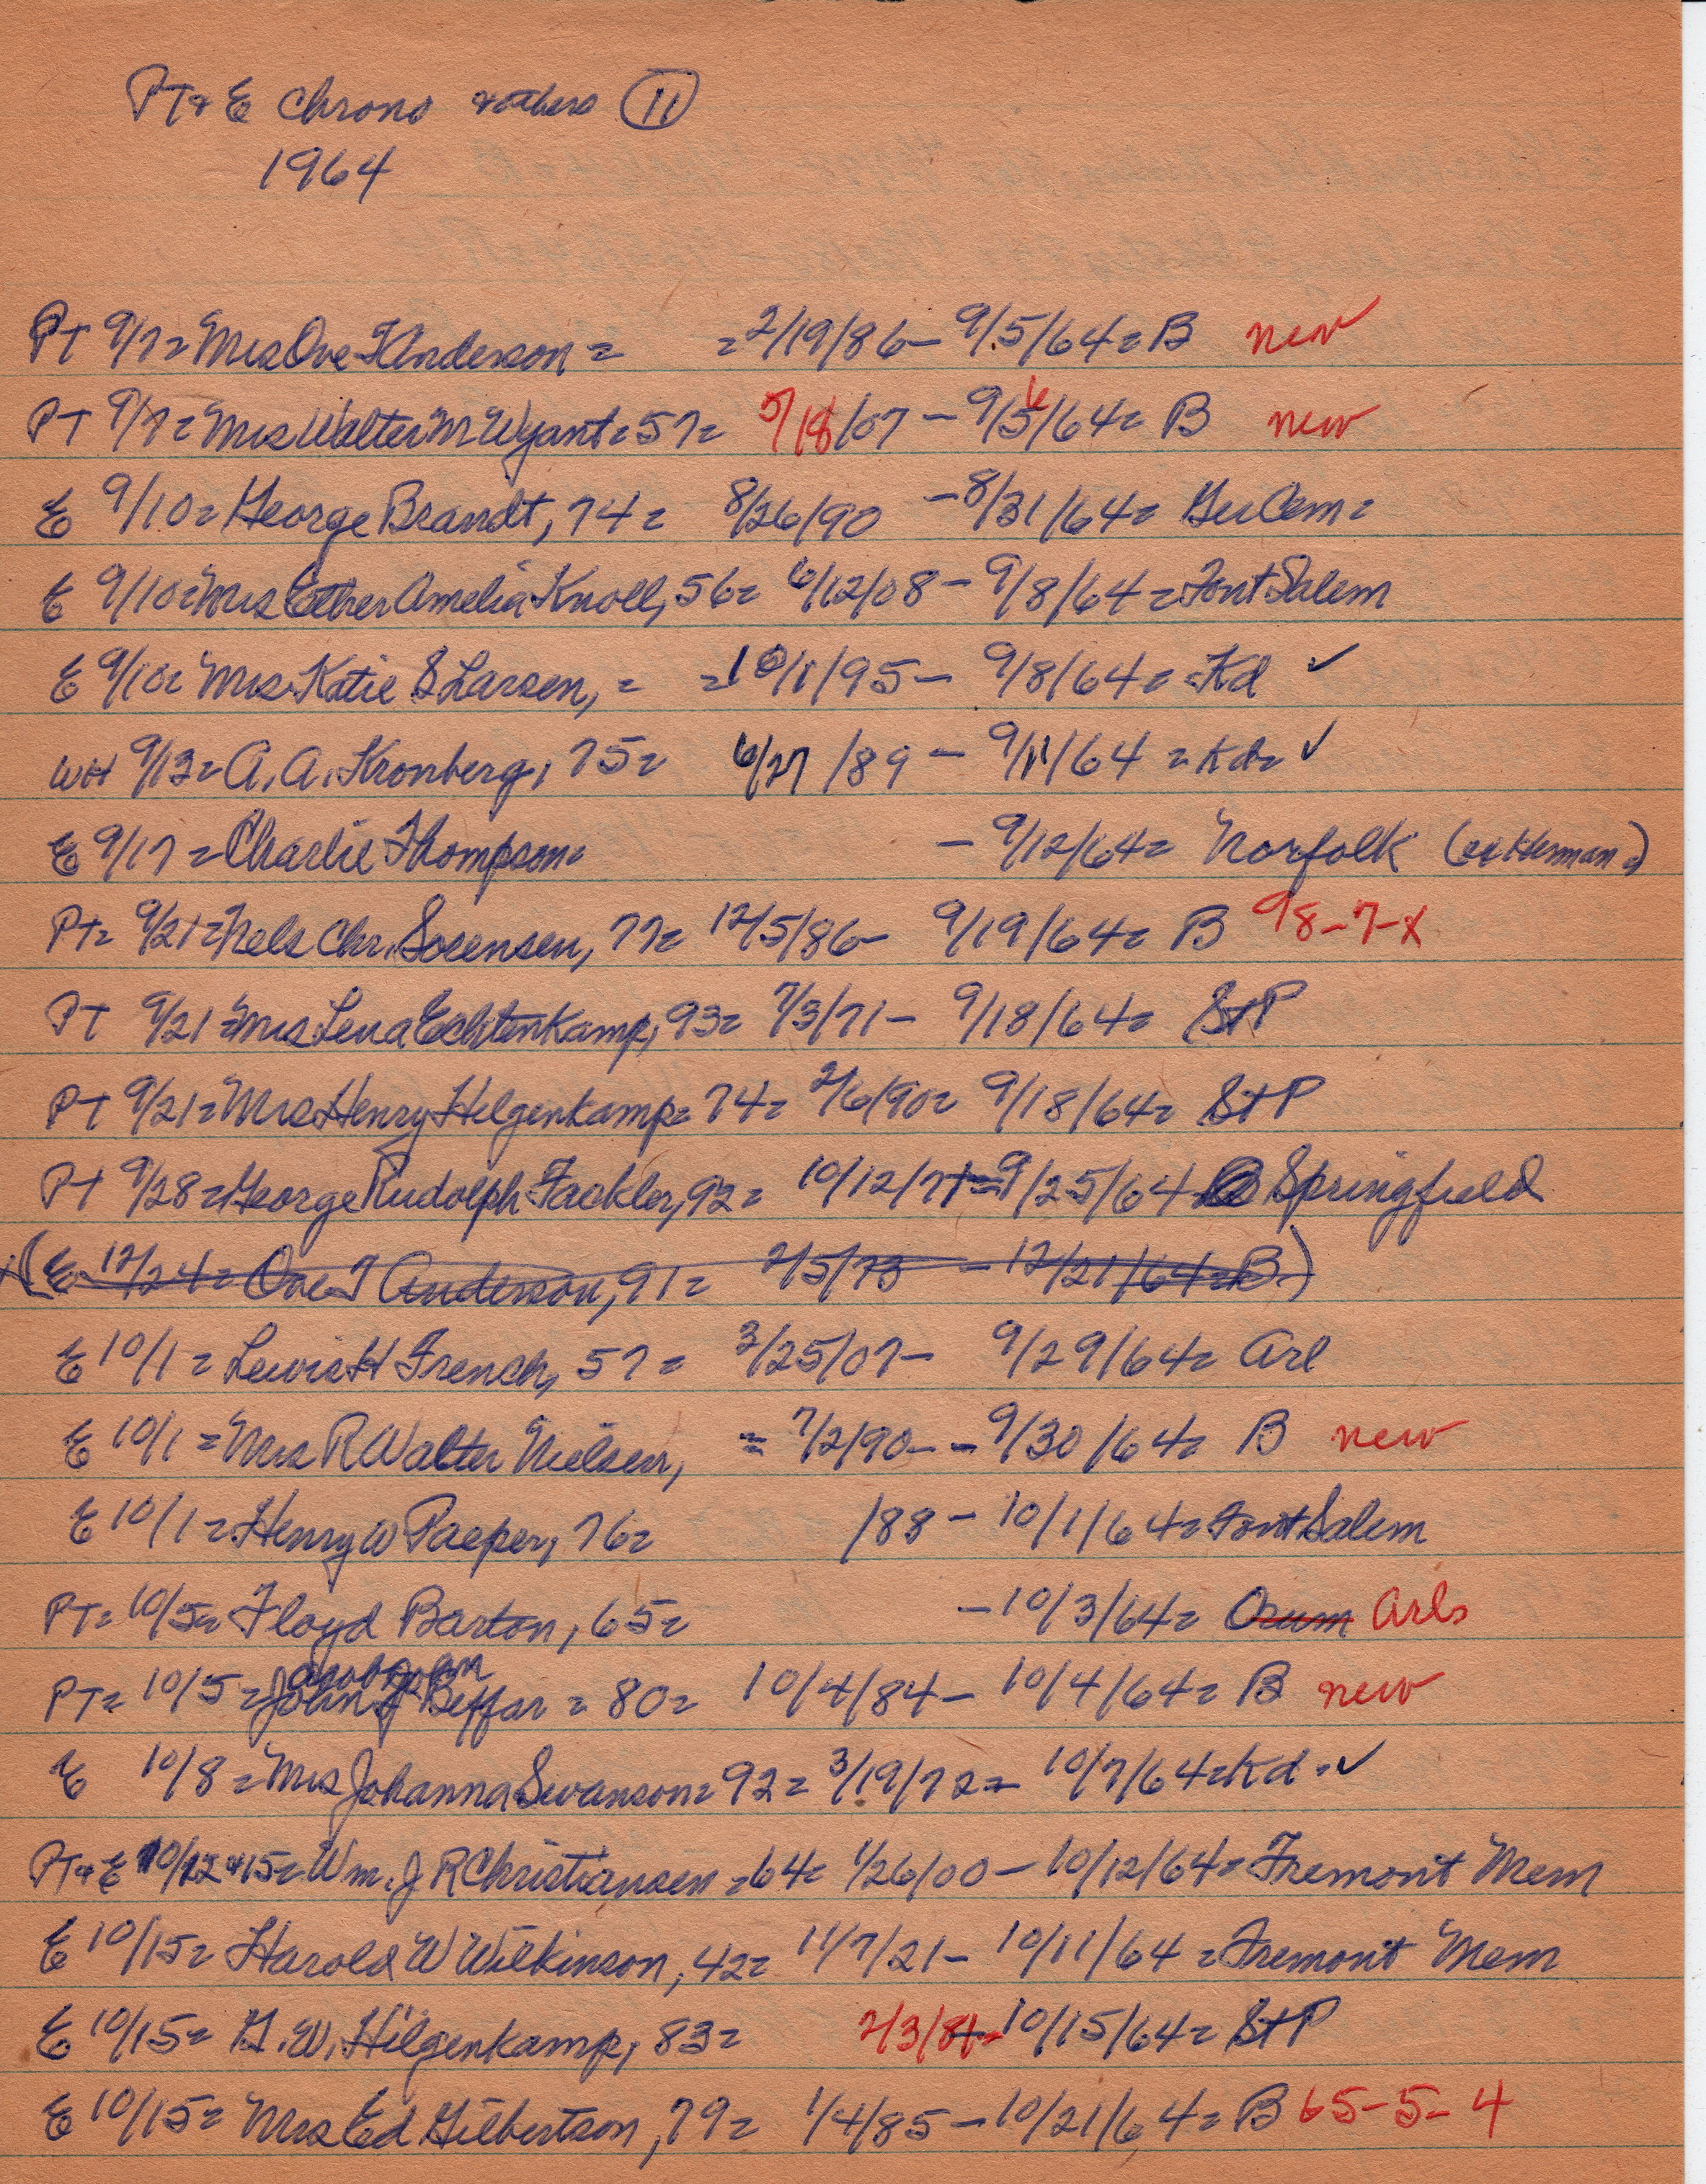 PT & E Chrono & others 11
1964
PT 9/7 = Mrs Ove T Anderson = = 2/19/86 - 9/5/64 = B new
PT 9/7 = Mrs Walter M Wyant = 57 = 5/18/07 - 9/6/64 = B new
E 9/10 = George Brandt, 74 = 8/26/90 - 8/31/64 = Cem =
E 9/10 = Mrs Amelia Knoll, 56 = 6/12/08 - 9/8/64 = Font Salem
E 9/10 = Mrs Katie S Larsen, = = 10/1/95 - 9/8/64 = Kd ✓
WH 9/13 = A. A. Kronberg, 75 = 6/27/89 - 9/11/64 = Kd = ✓
E 9/17 = Charlie Thompson = - 9/12/64 = Norfolk (ex Herman =)
PT = 9/21 = Nels Chr. Sorensen, 77 = 12/5/86 - 9/19/64 = B 98-7-x
PT 9/21 = Mrs Lena Echtenkamp, 93 = 7/3/71 - 9/18/64 = St P
PT 9/21 = Mrs Henry Hilgenkamp = 74 = 2/6/90 = 9/18/64 = St P
PT 9/28 = George Rudolph Fackler, 92 = 10/12/71 = 9/25/64 Springfield
(E 12/24 = Ove T Anderson, 91 = 2/5/73 - 12/21/64 = B)
E 10/1 = Lewis H French, 57 = 3/25/07 - 9/29/64 = Arl
E 10/1 = Mrs R Walter Nielsen, = 7/2/90 - - 9/30/64 = B new
E 10/1 = Henry W Paeper, 76 = /88 - 10/1/64 = Font Salem
PT = 10/5 = Floyd Barton, 65 = - 10/3/64 = Orum Arl
Jacob John
PT = 10/5 = John J Beffar = 80 = 10/4/84 - 10/4/64 = B new
E 10/8 = Mrs Johanna Swanson = 92 = 3/19/72 = 10/7/64 = Kd. ✓
PT & E 10/12 & 15 = Wm. J R Christiansen = 64 = 1/26/00 - 10/12/64 = Fremont Mem
E 10/15 = Harold W Wilkinson, 42 = 11/7/21 - 10/11/64 = Fremont Mem
E 10/15 = G. W. Hilgenkamp, 83 = 2/3/81 - 10/15/64 = St P
E 10/15 = Mrs Ed Gilbertson, 79 = 1/4/85 - 10/21/64 = B 65-5-4